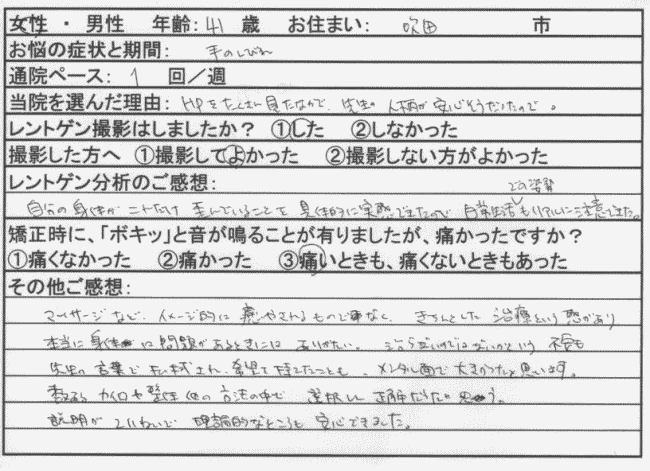 女性 ・ 男性 年齢: 41 歳 お住まい: 吹田 市
お悩の症状と期間: 手のしびれ
通院ペース: 1 回/週
当院を選んだ理由: HPをたくさん見たなかで、先生の人柄が安心そうだったので。
レントゲン撮影はしましたか? ①した ②しなかった
撮影した方へ ①撮影してよかった ②撮影しない方がよかった
レントゲン分析のご感想:
での姿勢
自分の身体がこれだけ歪んでいることを具体的に実感できたので 日常生活もリアルに注意できた。
矯正時に、「ボキッ」と音が鳴ることが有りましたが、痛かったですか?
①痛くなかった ②痛かった ③痛いときも、痛くないときもあった
その他ご感想:
マッサージなど、イメージ的に癒やされるものではなく、きちんとした治療という感があり
本当に身体に問題があるときにはありがたい。治らないのではないかという不安も
先生の言葉で払拭され、希望を持てたことも、メンタル面で大きかったと思います。
カイロや整体 他の方法の中で 選択し 正解だったと思う。
説明がていねいで 理論的なところも 安心できました。